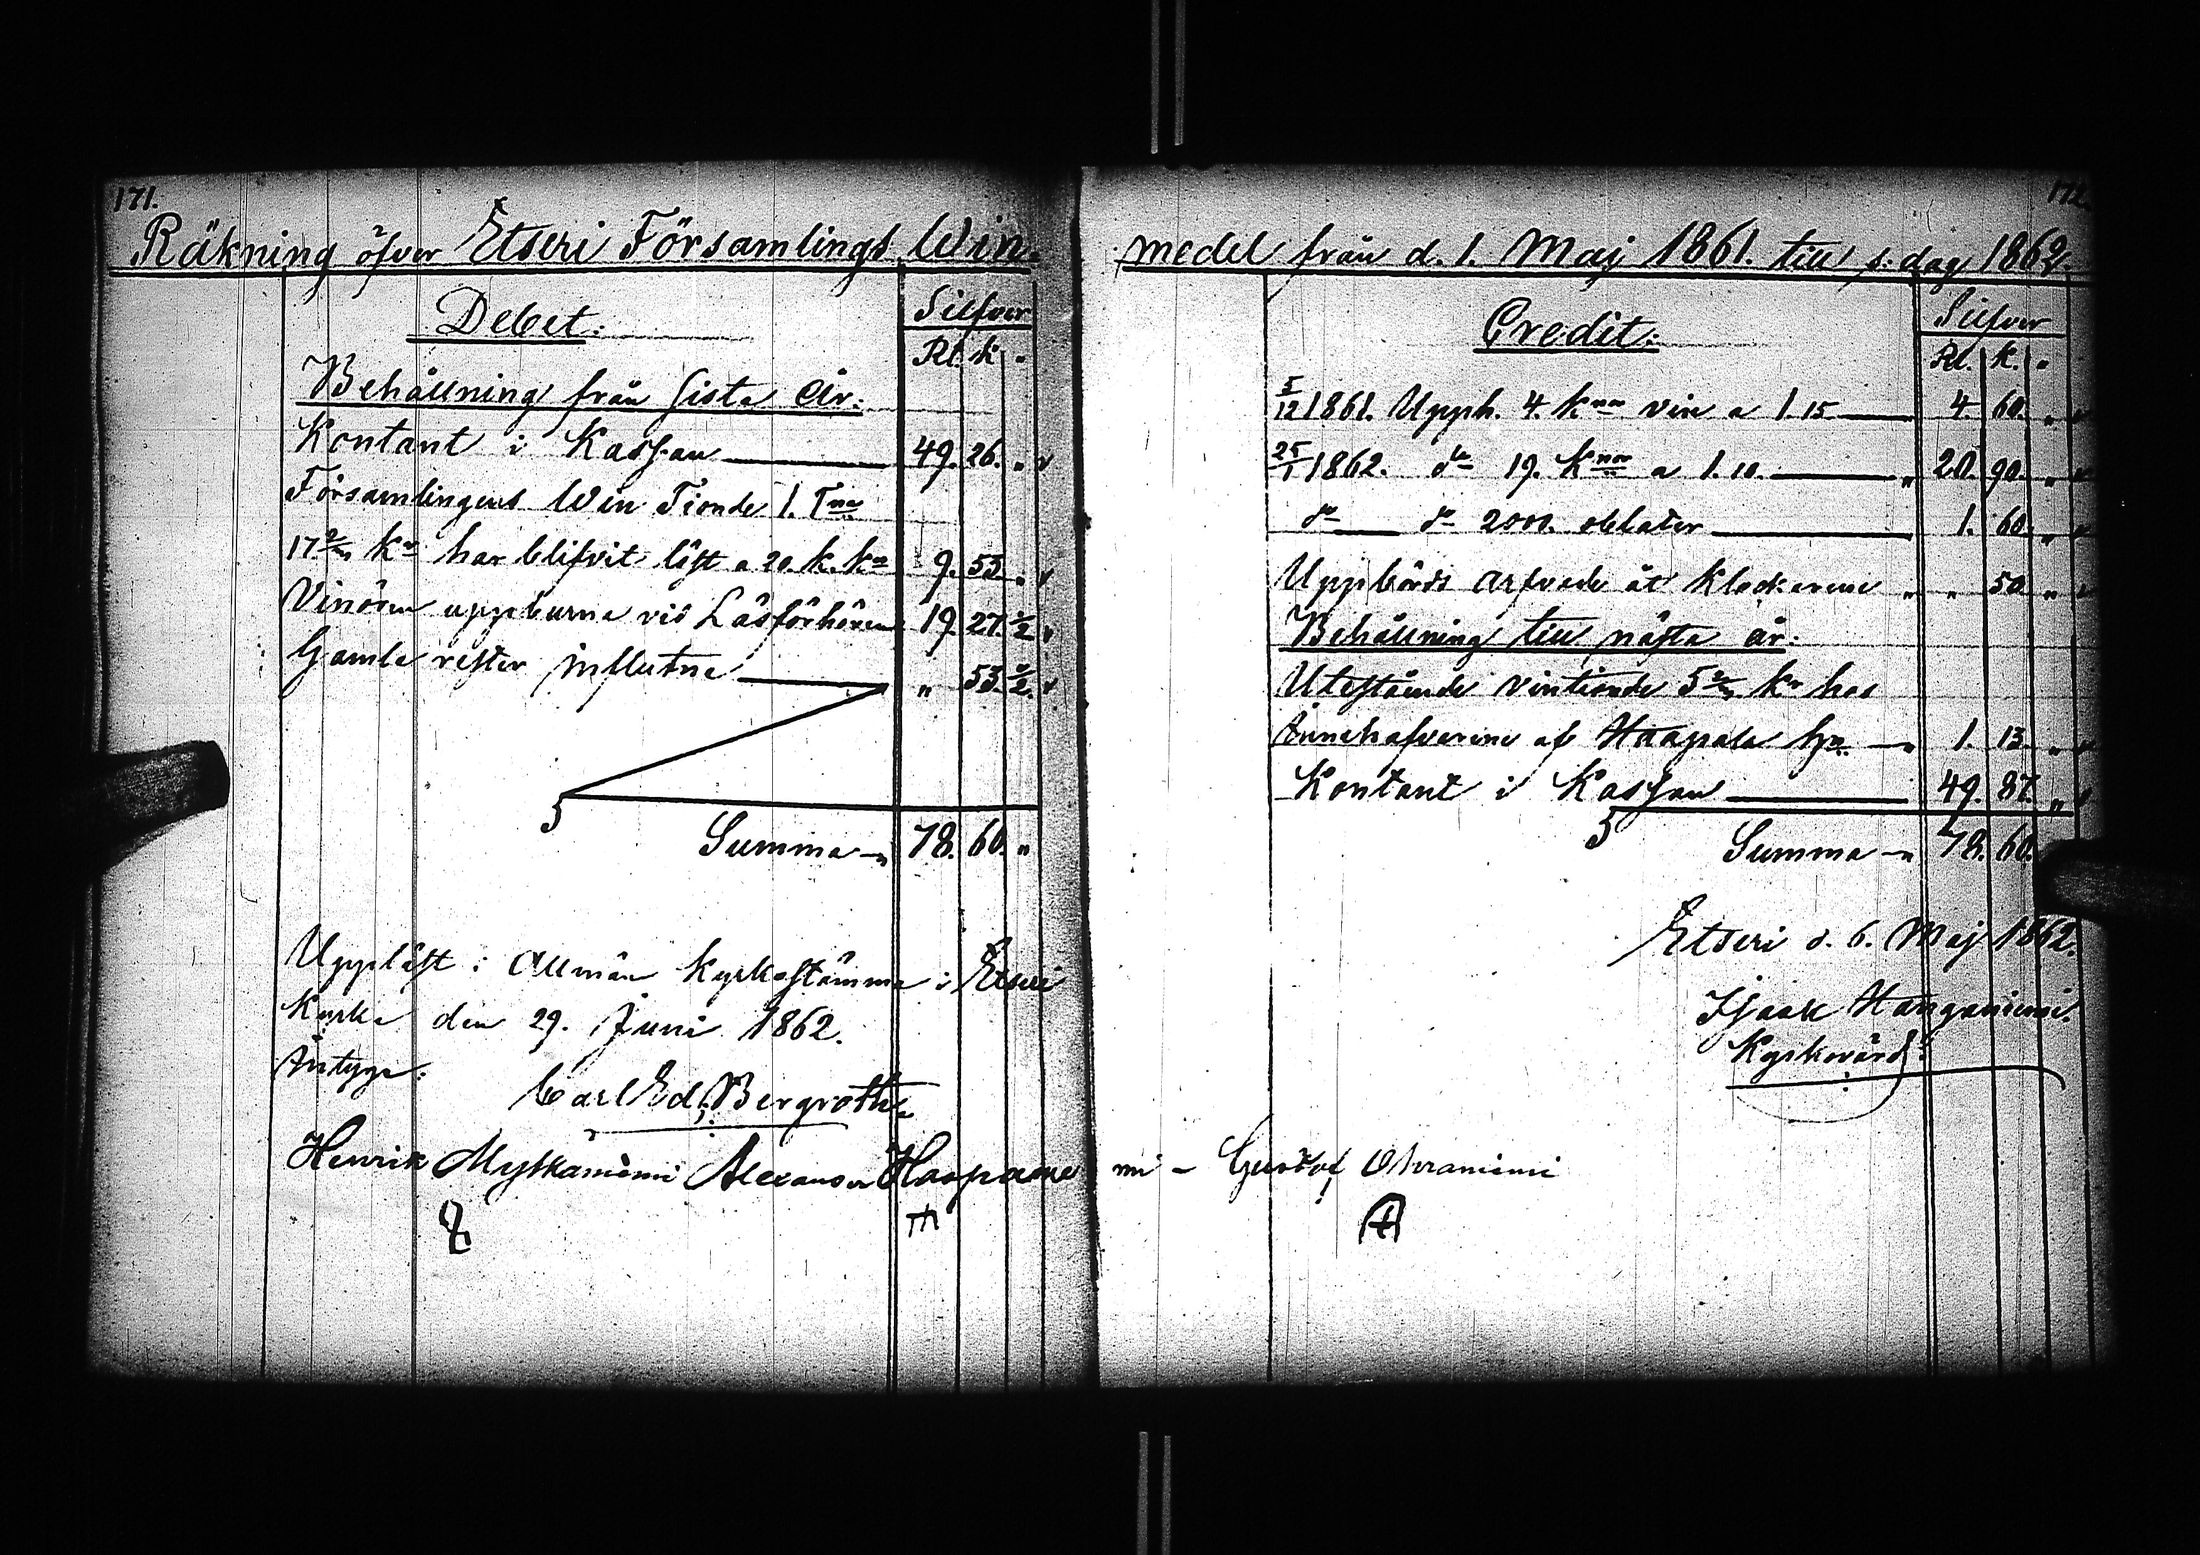 171.
Räkning öfver Etseri Församlings Win-
Debet:
Silfver
Rl. k.
Behållning från sista År:
Kontant i Kassan 49. 26. "
Församlingens Win Tionde 1. Tna
17 2/3 Kr har blifvit löst a 20. k. kn 9. 53. "
Vinören uppburne vid Läsförhören 19. 27. 1/2
Gamla rester influtne " 53. 1/2.
Summa 78. 60. "
Uppläst i Allmän Kyrkostämma i Etseri
Kyrka den 29. Juni 1862.
Intyga:
Carl Ed. Bergroth
Henrik Myllkäniemi Alexander Haapanie
172.
medel från d. 1. Maj 1861. till s. dag 1862.
Credit:
Silfver
Rl. k. "
5/12 1861. Upph. 4. Knor vin a 1. 15 4 60. "
25/1 1862. do 19. Knor a 1. 10. " 20. 90. "
do do 2000. oblater 1. 60. "
Uppbörds arfvode åt klockarene " " 50 "
Behållning till nästa år:
Utestående vintionde 5 2/3 Kr hos
Innehafvarene af Haapala hn. 1. 13. "
Kontant i Kassan 49. 87. "
Summa 78. 60.
Etseri d. 6. Maj 1862.
Isaak Hanganiemi.
Kyrkovärd.
mi - Gustaf Ohraniemi